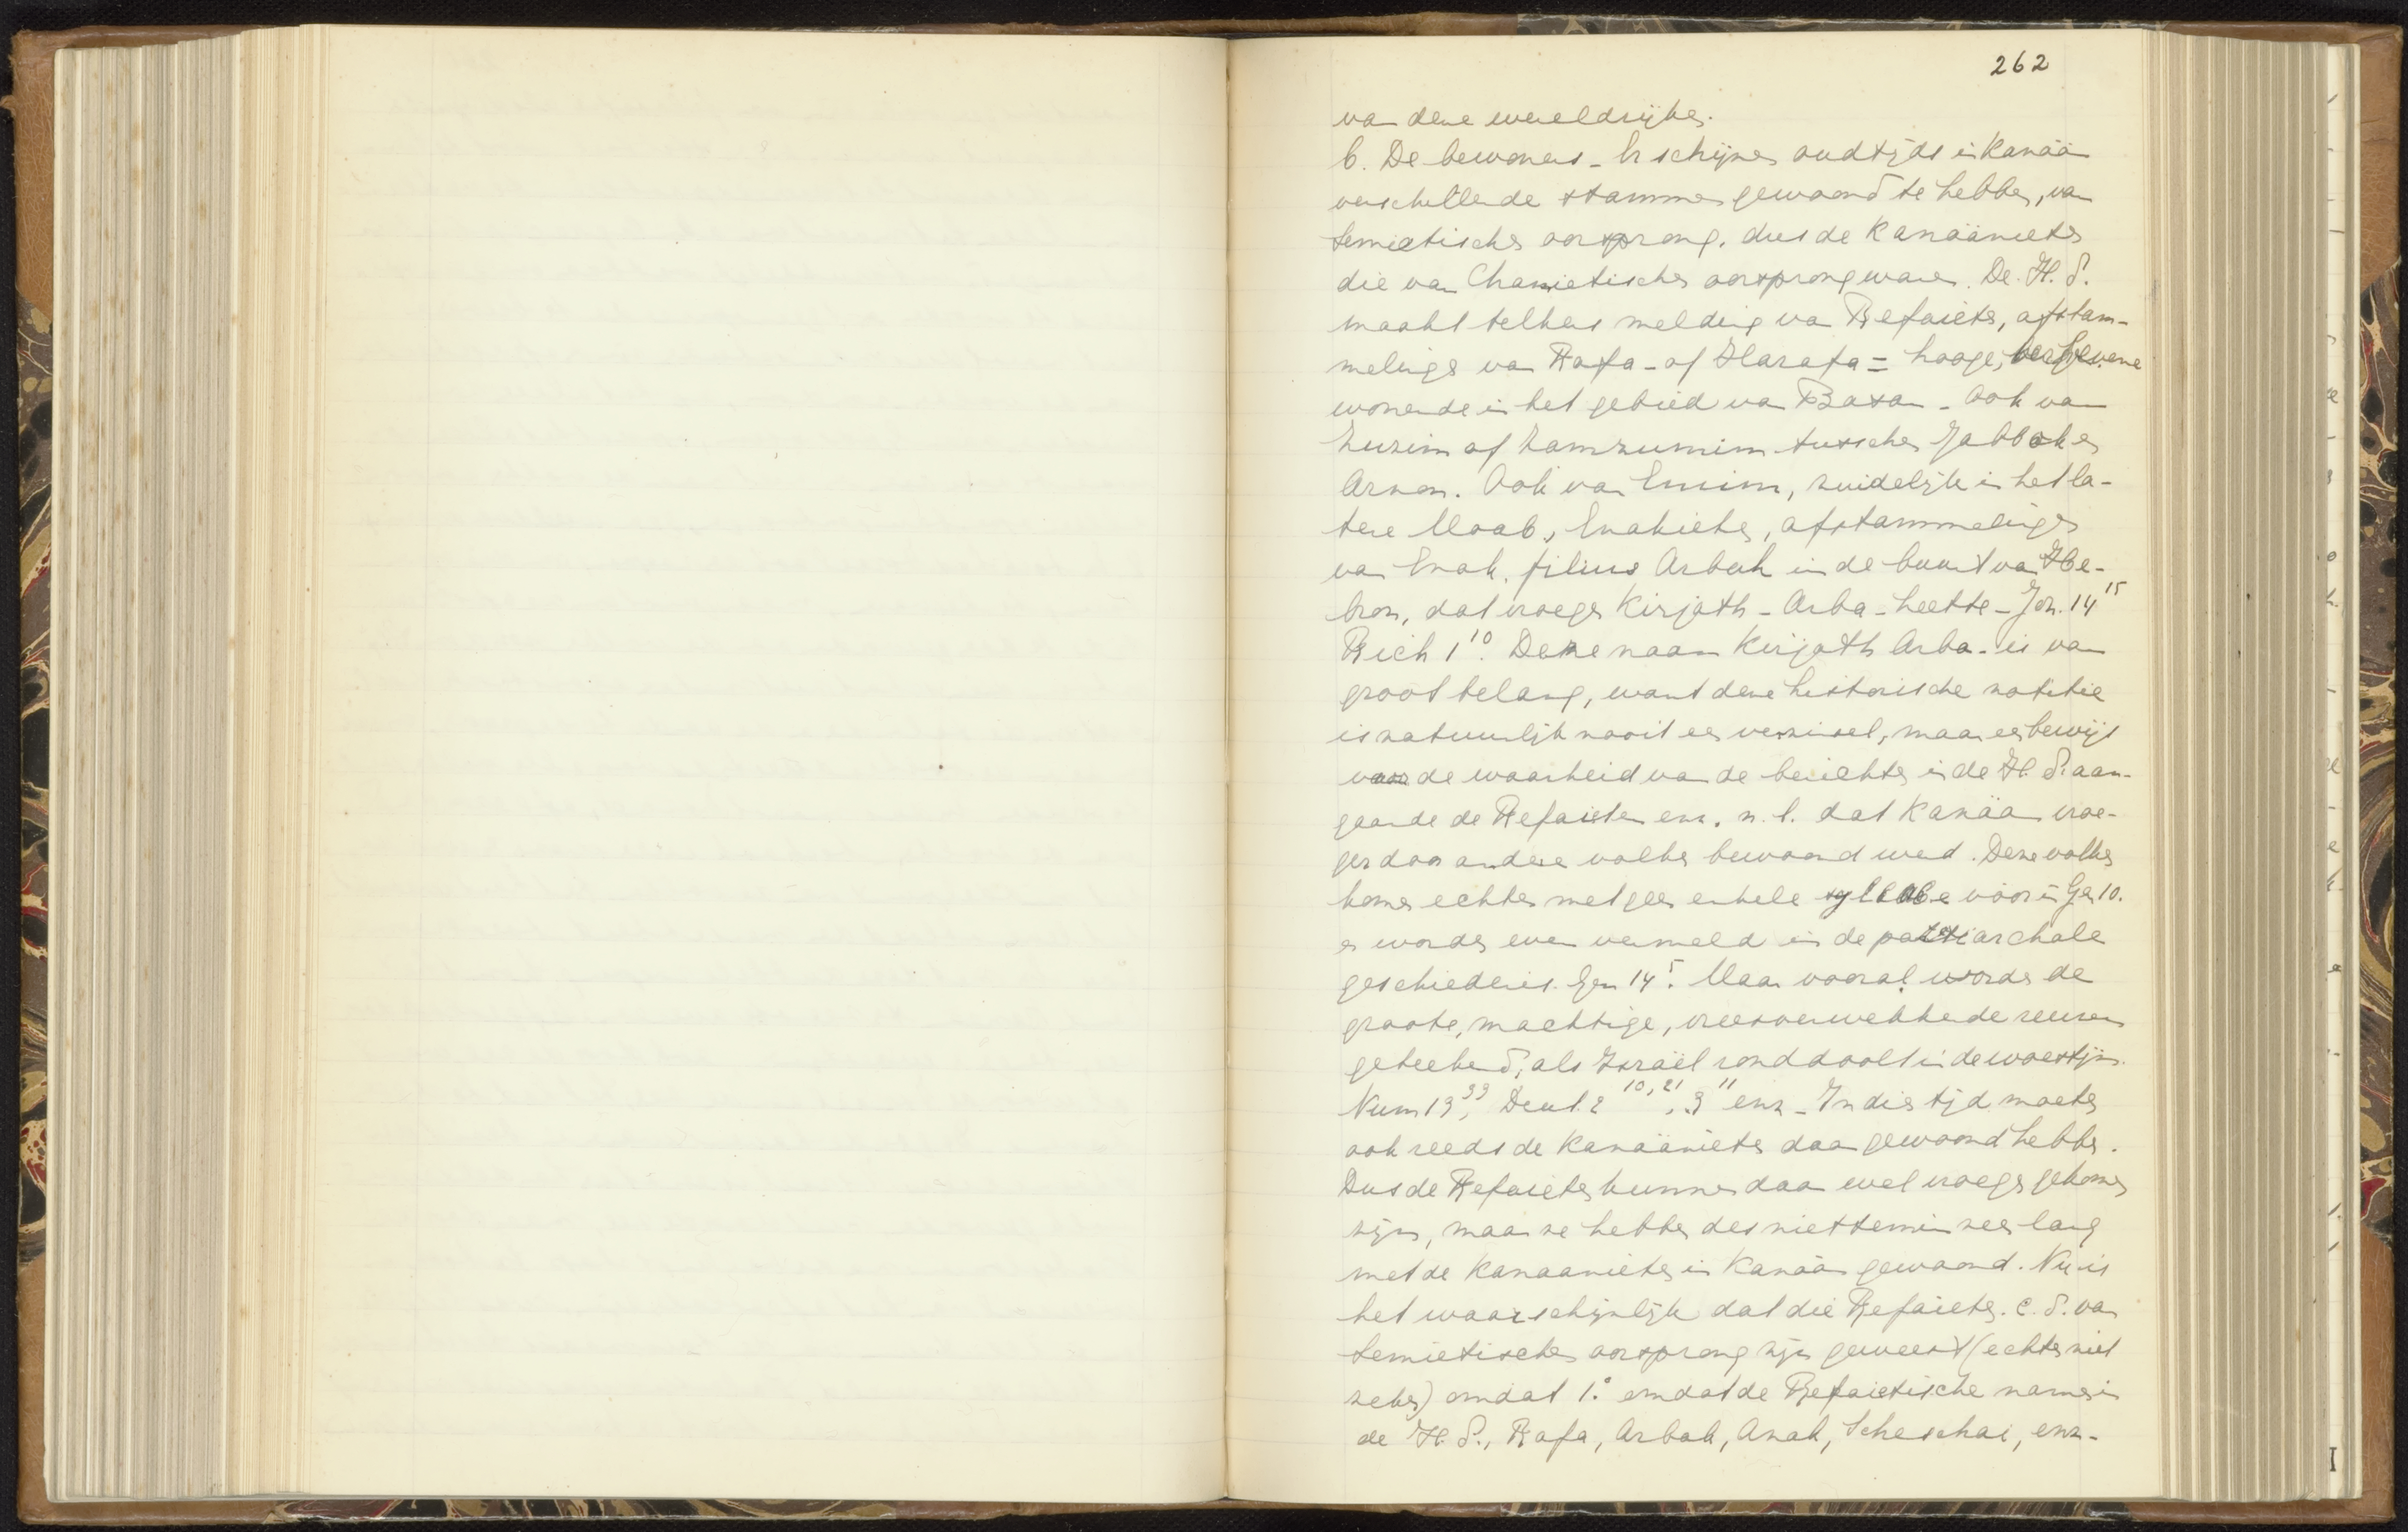 262
van deze wereldrijken.
b. De bewoners - Er schijnen oudtijds in Kanaän
verschillende stammen gewoond te hebben, van
Semietischen oorsprong. dus de Kanaänieten
die van Chamietischen oorsprong waren. De H. S.
maakt telkens melding van Refaieten, afstam-
melingen van Rafa - of Harafa = hooge, verhevene
wonende in het gebied van Basan - Ook van
Zuzim of Zamzummim tusschen Jabbok en
Arnon. Ook van Emim, zuidelijk in het la-
tere Moab, Enakieten, afstammelingen
van Enak, filius Arbah in de buurt van He-
bron, dat vroeger Kirjath - Arba - heette - Joz. 14 15
Rich 1 10. Deze naam Kirjath Arba - is van
groot belang, want deze historische notitie
is natuurlijk nooit een verzinsel, maar een bewijs
voor de waarheid van de berichten in de H. S. aan-
gaande de Refaieten enz. n. l. dat Kanäan vroe-
ger door andere volken bewoond werd. Deze volken
komen echter met geen enkele syllabe voor in Gen 10.
en worden even vermeld in de patriarchale
geschiedenis. Gen 14 5. Maar vooral worden de
groote, machtige, vreesverwekkende reuzen
geteekend, als Israël ronddoolt in de woestijn.
Num 13 33, Deut. 2 10, 21, 3 11 enz - In dien tijd moeten
ook reeds de Kanaänieten daar gewoond hebben.
Dus de Refaieten kunnen daar wel vroeger gekomen
zijn, maar ze hebben desniettemin zeer lang
met de Kanaanieten in Kanaän gewoond. Nu is
het waarschijnlijk dat die Refaieten. c. s. van
Semietischen oorsprong zijn geweest (echter niet
zeker) omdat 1.° omdat de Refaietische namen in
de H. S., Rafa, Arbah, Anak, Scheschai, enz -